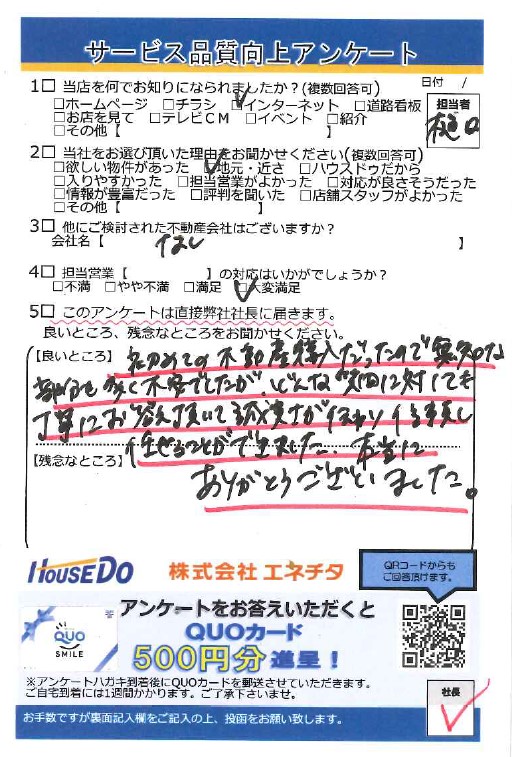 サービス品質向上アンケート
日付 /
1□ 当店を何でお知りになられましたか?(複数回答可)
□ホームページ □チラシ ☑インターネット □道路看板
□お店を見て □テレビCM □イベント □紹介
□その他【 】
担当者
樋口
2□ 当社をお選び頂いた理由をお聞かせください(複数回答可)
□欲しい物件があった ☑地元・近さ □ハウスドゥだから
□入りやすかった □担当営業がよかった □対応が良さそうだった
□情報が豊富だった □評判を聞いた □店舗スタッフがよかった
□その他【 】
3□ 他にご検討された不動産会社はございますか?
会社名【 なし 】
4□ 担当営業【 】の対応はいかがでしょうか?
□不満 □やや不満 □満足 ☑大変満足
5□ このアンケートは直接弊社社長に届きます。
良いところ、残念なところをお聞かせください。
【良いところ】 初めての不動産購入だったので無知な
部分も多く不安でしたが、どんな質問に対しても
丁寧にお答え頂いて誠実さが伝わり信頼し
任せることができました。本当に
【残念なところ】
ありがとうございました。
HOUSEDO 株式会社 エネチタ
QRコードからも
ご回答頂けます。
アンケートをお答えいただくと
QUOカード
500円分進呈!
QUO
SMILE
※アンケートハガキ到着後にQUOカードを郵送させていただきます。
ご自宅到着には1週間かかります。ご了承下さいませ。
社長
お手数ですが裏面記入欄をご記入の上、投函をお願い致します。